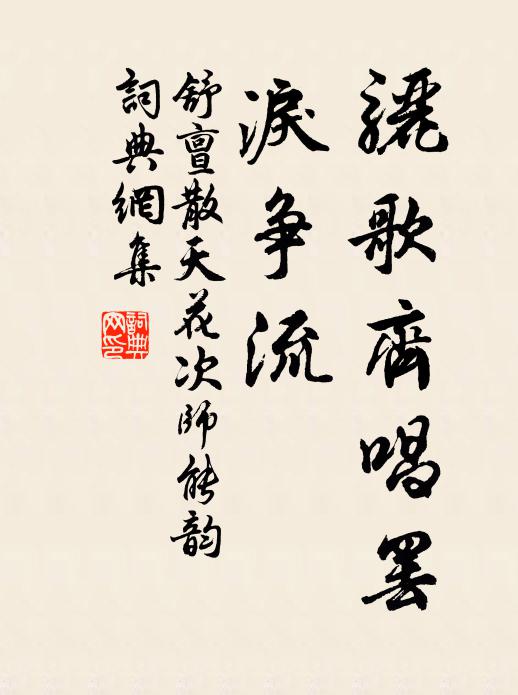 驪歌齊唱罷
淚争流
舒亶散天花次師能韵
詞典網集
詞典網印